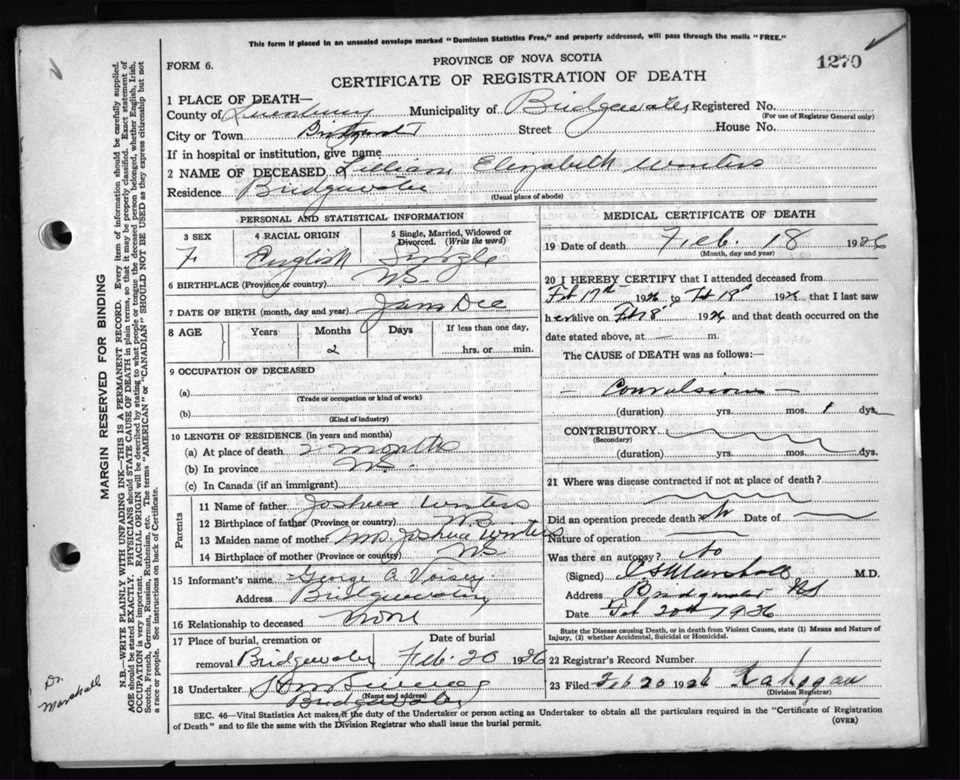 This form if placed in an unsealed envelope marked "Dominion Statistics Free," and properly addressed, will pass through the mails "FREE."
FORM 6.
PROVINCE OF NOVA SCOTIA
1270
CERTIFICATE OF REGISTRATION OF DEATH
1 PLACE OF DEATH—
County of Lunenburg Municipality of Bridgewater Registered No.
(For use of Registrar General only)
City or Town Bridgewater Street House No.
If in hospital or institution, give name
2 NAME OF DECEASED Lillian Elizabeth Winters
Residence Bridgewater
(Usual place of abode)
PERSONAL AND STATISTICAL INFORMATION
3 SEX 4 RACIAL ORIGIN 5 Single, Married, Widowed or Divorced. (Write the word)
F English Single
6 BIRTHPLACE (Province or country) N.S.
7 DATE OF BIRTH (month, day and year)
8 AGE Years Months Days If less than one day,
2 hrs. or min.
9 OCCUPATION OF DECEASED
(a)
(Trade or occupation or kind of work)
(b)
(Kind of industry)
10 LENGTH OF RESIDENCE (in years and months)
(a) At place of death 2 months
(b) In province N.S.
(c) In Canada (if an immigrant)
Parents
11 Name of father Joshua Winters
12 Birthplace of father (Province or country) N.S
13 Maiden name of mother Mrs. Joshua Winters
14 Birthplace of mother (Province or country) N.S
15 Informant's name George C Voisey
Address Bridgewater
16 Relationship to deceased None
17 Place of burial, cremation or Date of burial
removal Bridgewater Feb. 20 1926
18 Undertaker
(Name and address)
Bridgewater
MEDICAL CERTIFICATE OF DEATH
19 Date of death Feb. 18 1926
(Month, day and year)
20 I HEREBY CERTIFY that I attended deceased from
Feb 17th 1926 to Feb 18th 1926 that I last saw
her alive on Feb 18 1926 and that death occurred on the
date stated above, at — m.
The CAUSE of DEATH was as follows:
— Convulsions —
(duration) yrs. mos. 1 dys.
CONTRIBUTORY
(Secondary)
(duration) yrs. mos. dys.
21 Where was disease contracted if not at place of death?
Did an operation precede death? No Date of
Nature of operation
Was there an autopsy? No
(Signed) Marshall M.D.
Address Bridgewater NS
Date Feb 20th 1926
State the Disease causing Death, or in death from Violent Causes, state (1) Means and Nature of Injury, (2) whether Accidental, Suicidal or Homicidal.
22 Registrar's Record Number
23 Filed Feb 20 1926
(Division Registrar)
SEC. 46—Vital Statistics Act makes it the duty of the Undertaker or person acting as Undertaker to obtain all the particulars required in the "Certificate of Registration
of Death" and to file the same with the Division Registrar who shall issue the burial permit.
(OVER)
MARGIN RESERVED FOR BINDING
N.B.—WRITE PLAINLY WITH UNFADING INK—THIS IS A PERMANENT RECORD. Every item of information should be carefully supplied.
AGE should be stated EXACTLY. PHYSICIANS should STATE CAUSE OF DEATH in plain terms, so that it may be properly classified. Exact statement of
OCCUPATION is very important. RACIAL ORIGIN will be described by stating to what people or tongue the deceased person belonged, whether English, Irish,
Scotch, French, German, Russian, Ruthenian, etc. The terms "AMERICAN" or "CANADIAN" SHOULD NOT BE USED as they express citizenship but not
a race or people. See instructions on back of Certificate.
Dr.
Marshall